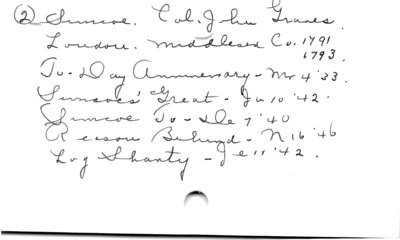 (2) Simcoe. Col. John Graves.
London. Middlesex Co. 1791
1793.
To-Day Anniversary - Mr 4 '33.
Simcoes' Great - Ju 10 '42.
Simcoe To - De 7 '40
Reason Behind - N 16 '46
Log Shanty - Je 11 '42.